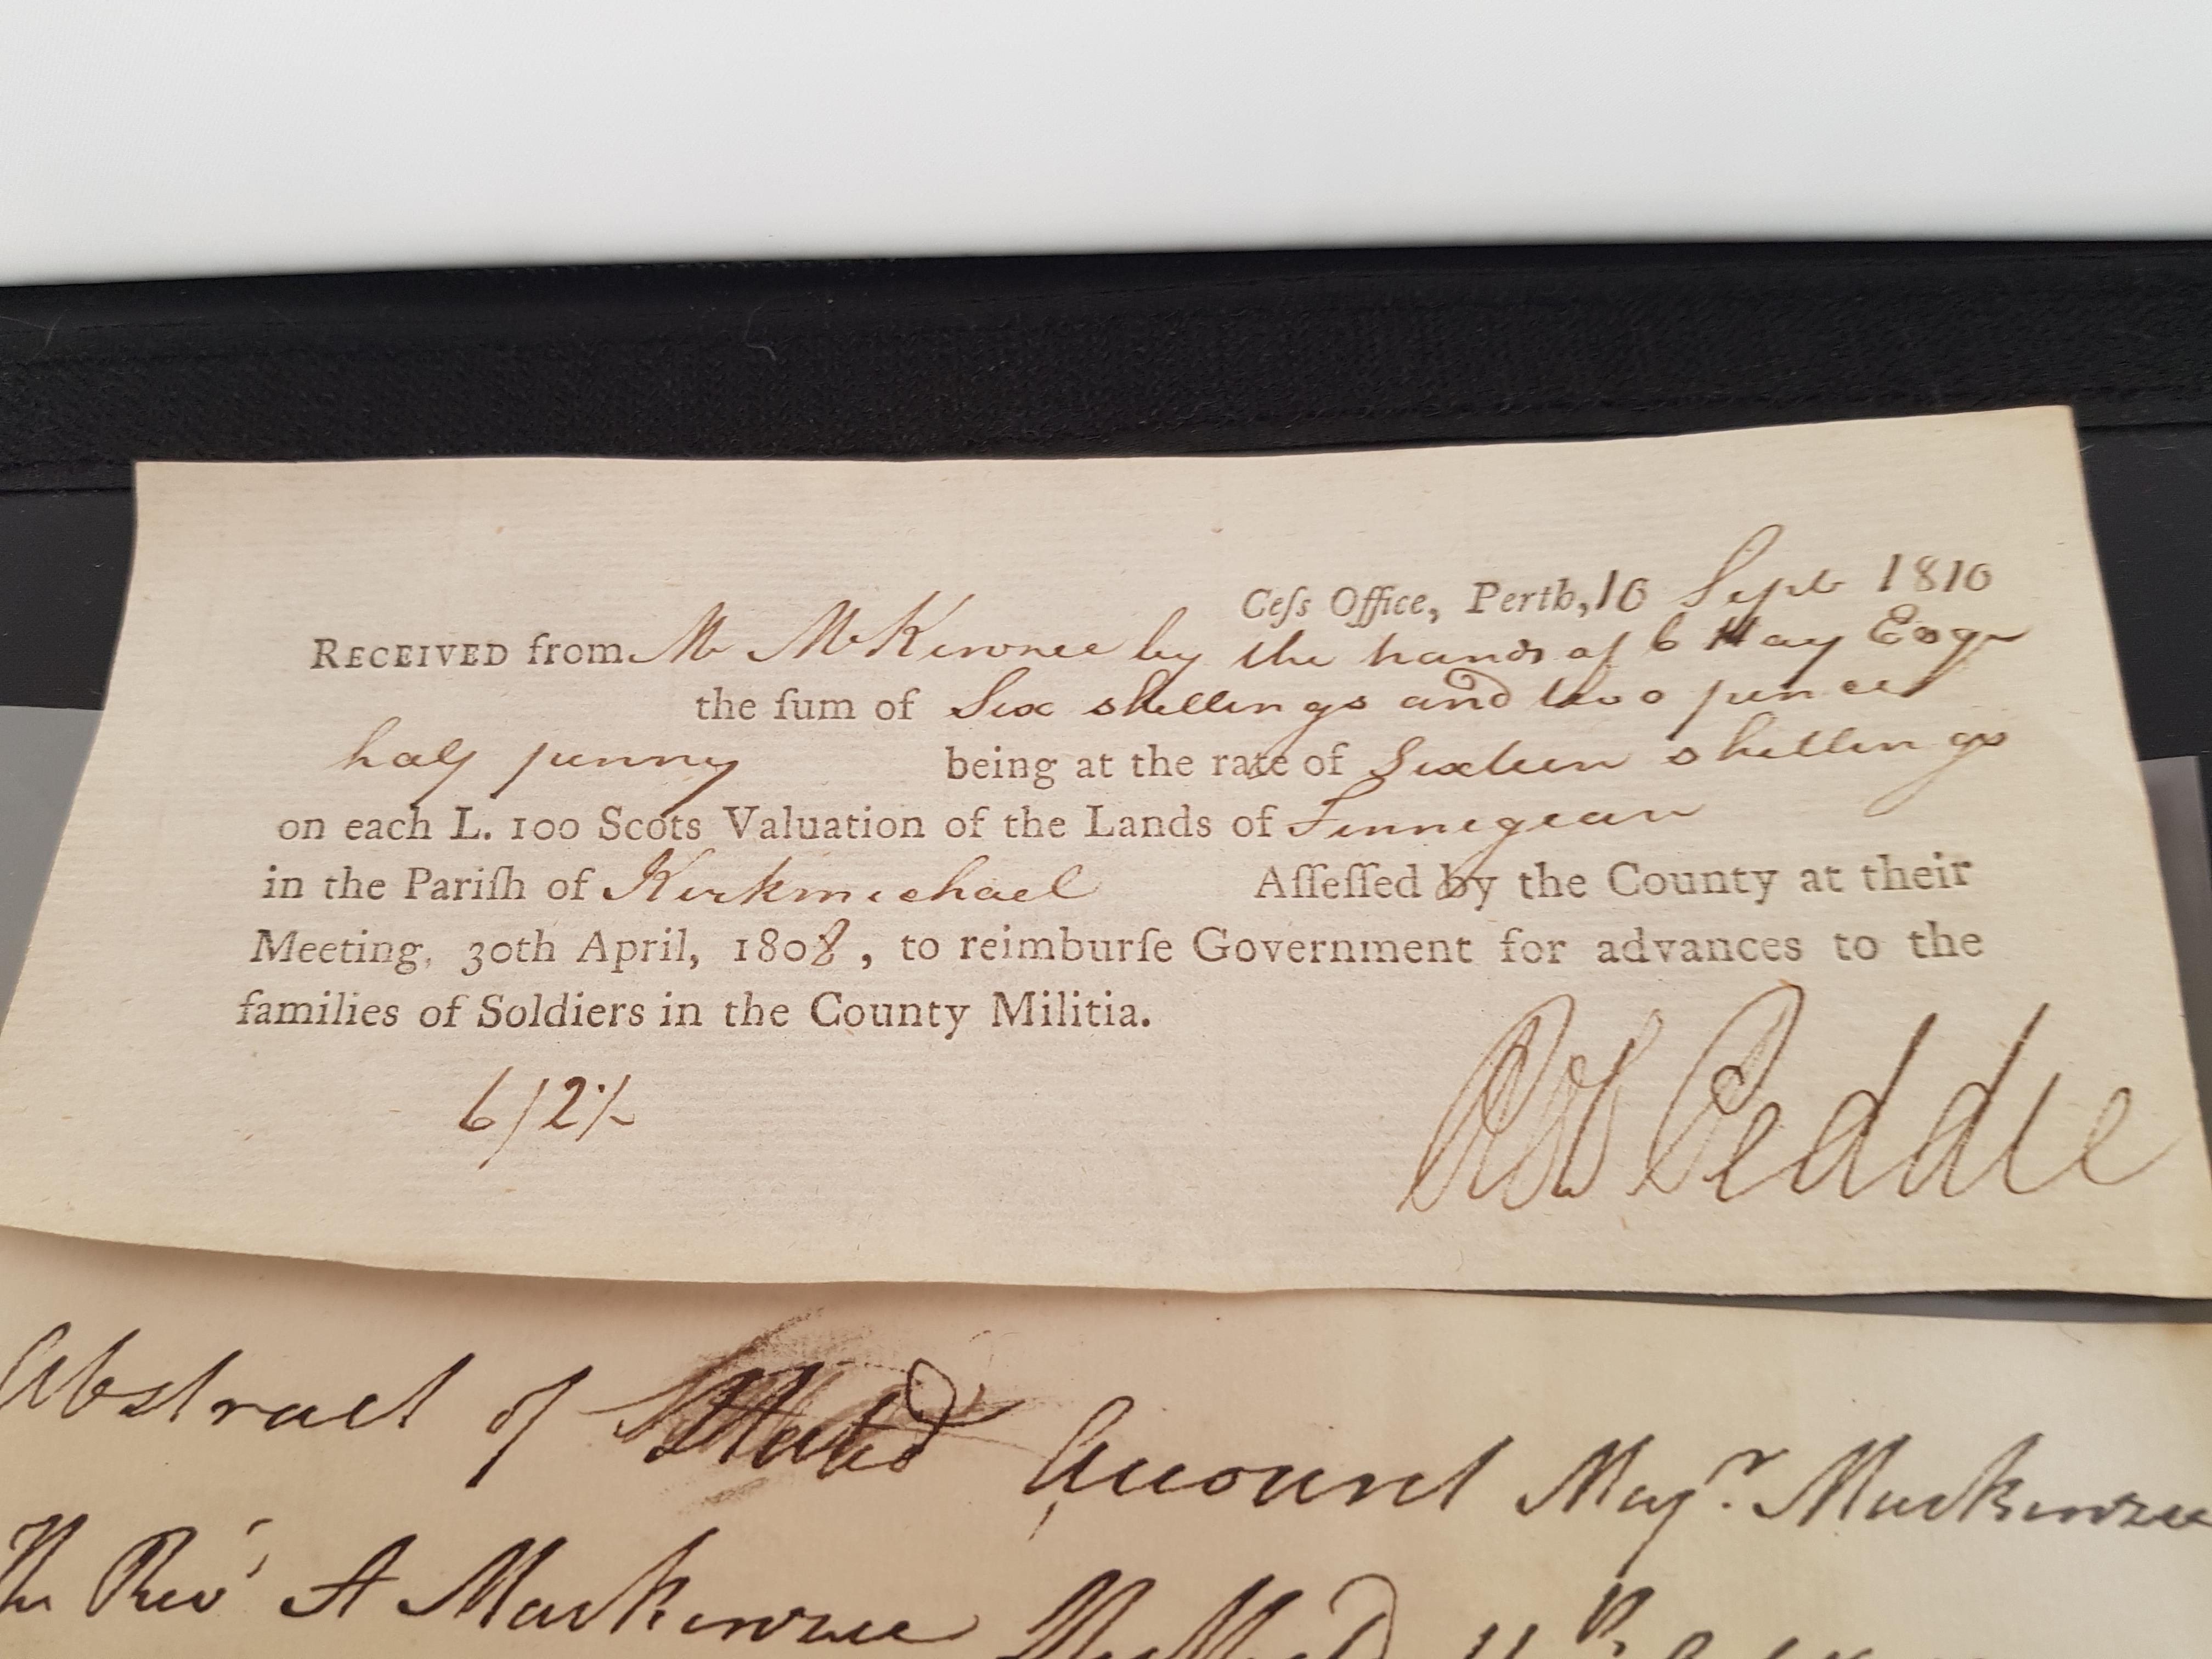 Ceſs Office, Perth, 10 Sept 1810
RECEIVED from Mr McKenzee by the hands of C Hay Esqr
the ſum of Six shillings and two pence
half penny being at the rate of Sixteen shillings
on each L. 100 Scots Valuation of the Lands of Finnegean
in the Pariſh of Kirkmichael Aſſeſſed by the County at their
Meeting, 30th April, 1808, to reimburſe Government for advances to the
families of Soldiers in the County Militia.
6/2½
Peddie
Abstract of Stated Account Majr. Mackenzee
The Revd A Mackenzee